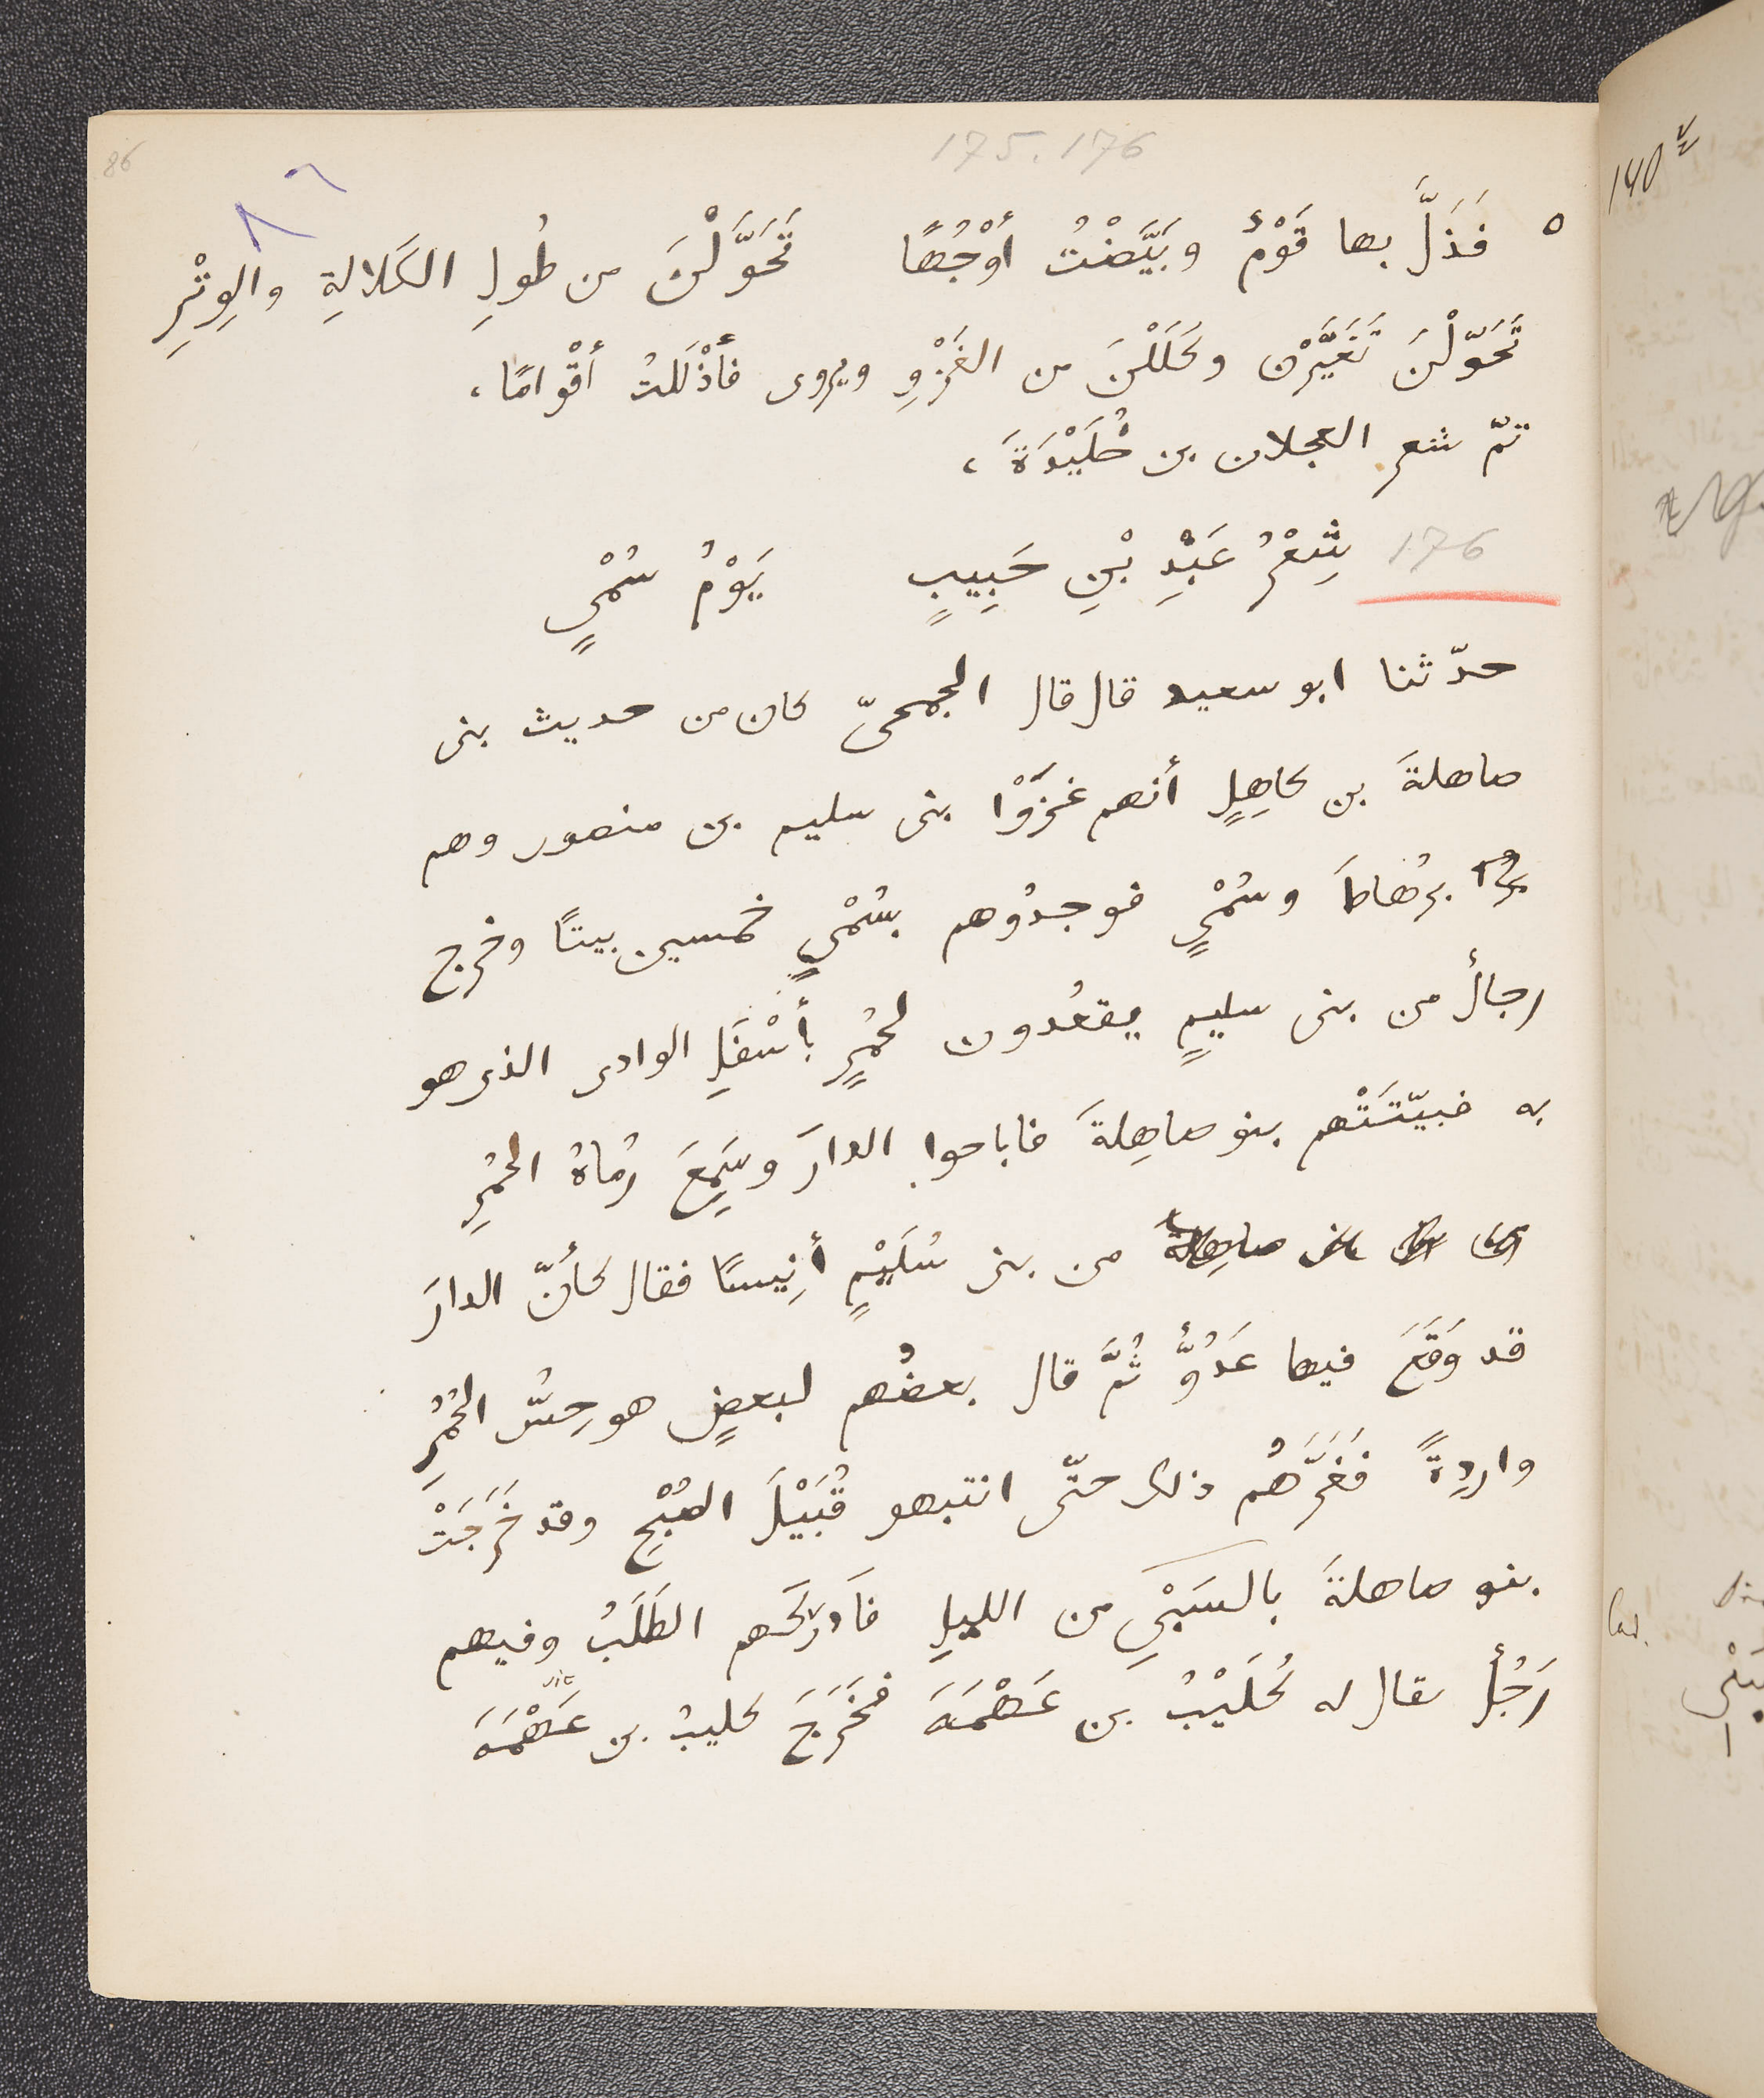 86
175. 176
٨٦
٥ فَذَلَّ بها قَوْمٌ وبَيَّضْتُ أوْجُهًا تَحَوَّلْنَ من طُولِ الكَلالةِ والوِتْرِ
تَحَوّلْنَ تَغَيَّرْن وكَلَلْنَ من الغَزْوِ ويروى فأذْلَلتُ أقْوامًا،
تمّ شعر العجلان بن خُلَيْدَةَ،
176 شِعْرُ عَبْدِ بْنِ حَبِيبٍ يَوْمُ سُمْيٍ
حدّثنا ابو سعيد قال قال الجمحىّ كان من حديث بنى
صاهلةَ بن كاهِلٍ أنهم غَزَوْا بنى سليم بن منصور وهم
برُهاطَ وسُمْيٍ فوجدُوهم بسُمْيٍ خمسين بيتًا وخرج
رجالٌ من بنى سليمٍ يقعُدون لحُمُرٍ بأسْفَلِ الوادى الذى هو
به فبيّتَتْهم بنو صاهِلةَ فاباحوا الدارَ وسَمِعَ رُماةُ الحُمُرِ
من بنى سُلَيْمٍ أنِيسًا فقال كأنّ الدارَ
قد وَقَعَ فيها عَدُوٌّ ثُمَّ قال بعضُهم لبعضٍ هو حِسُّ الحُمُرِ
واردِةً فَغَرَّهُم ذلك حتّى انتبهو قُبَيْلَ الصُبْحِ وقد خَرَجَتْ
بنو صاهلةَ بالسَبْىِ من الليلِ فَادركَهم الطَلَبُ وفيهم
رَجُلٌ يقال له كُلَيْبُ بن عَهْمَةَ فخَرَجَ كليبُ بن عَهْمَةَ
140 v
Cod.